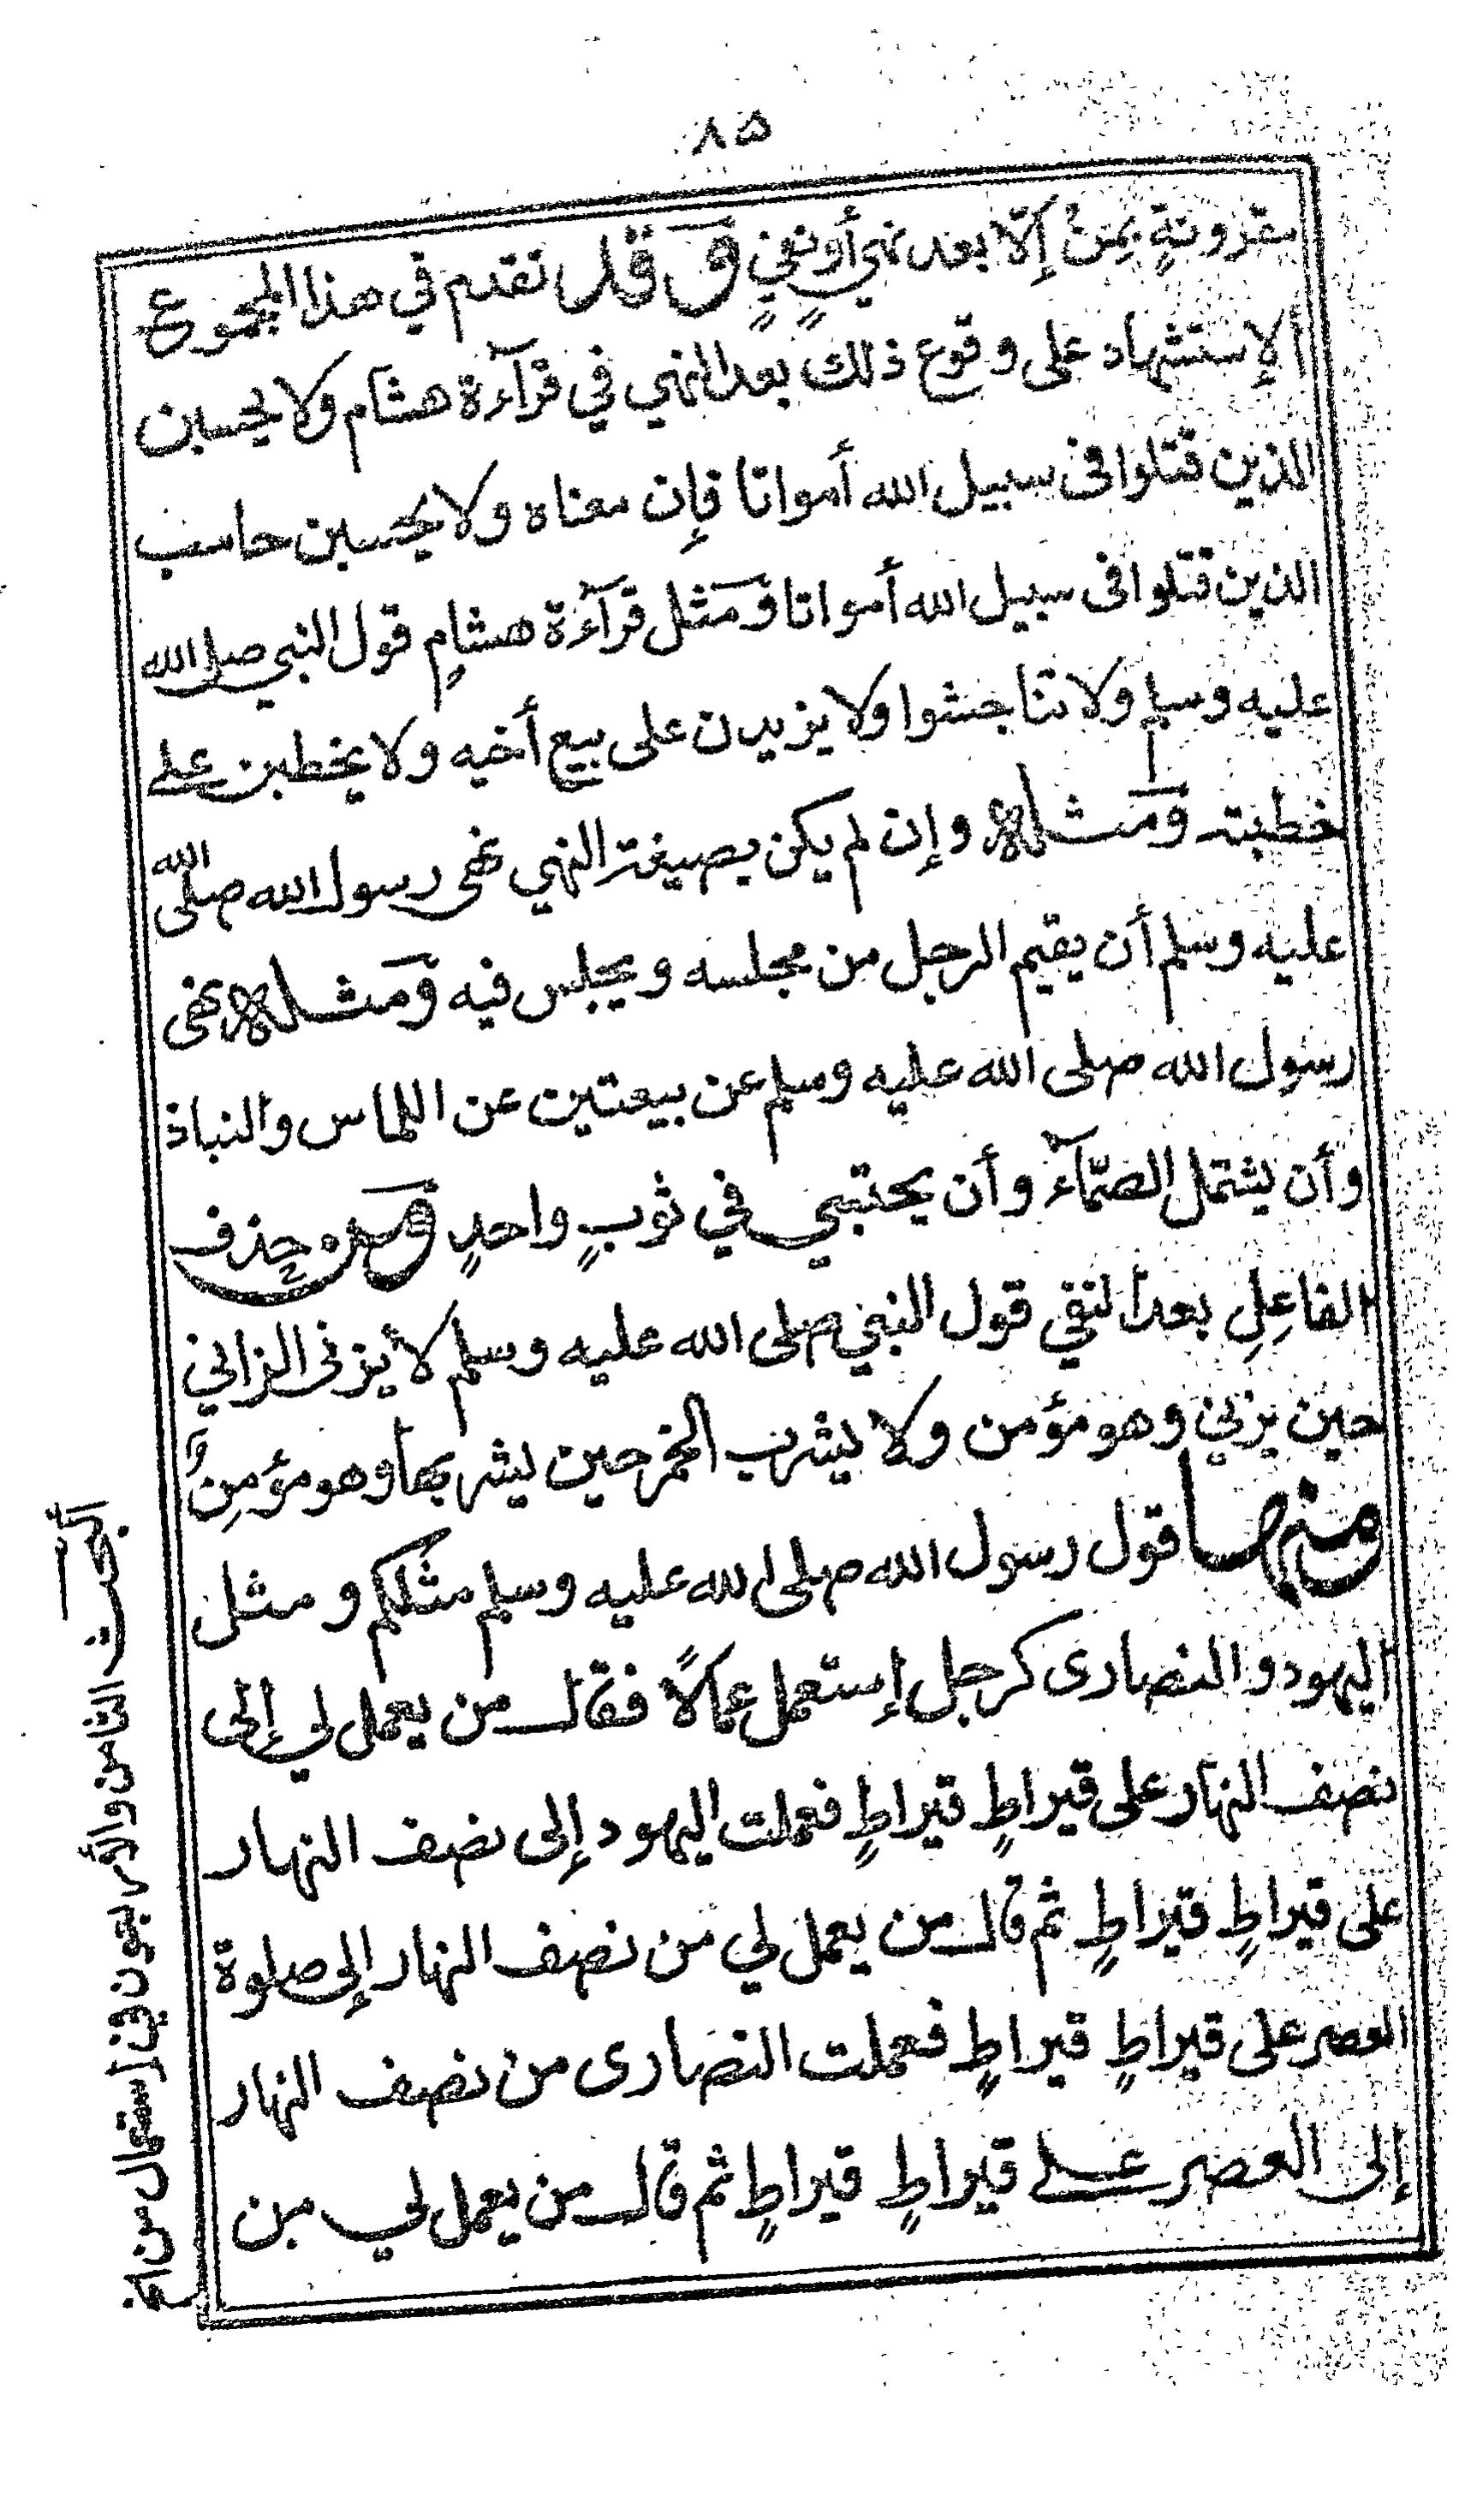 ٨٥
مقرونةٍ بِمِنْ إلّا بعد نهيٍ أو نفيٍ وقد تقدم في هذا المجموع
الإستشهاد على وقوع ذلك بعد النهي في قرآءة هشام ولا يحسبن
الذين قتلوا في سبيل الله أمواتا فإن معناه ولا يحسبن حاسب
الذين قتلوا في سبيل الله أمواتا ومثل قرآءة هشامٍ قول النبي صلى الله
عليه وسلم ولا تناجشوا ولا يزيدن على بيع أخيه ولا يخطبن على
خطبته ومثله وإن لم يكن بصيغة النهي نهى رسول الله صلى الله
عليه وسلم أن يقيم الرجل من مجلسه ويجلس فيه ومثله نهى
رسول الله صلى الله عليه وسلم عن بيعتين عن اللماس والنباذ
وأن يشتمل الصّمّآء وأن يحتبي في ثوبٍ واحدٍ ومن حذف
الفاعِلِ بعد النفي قول النبي صلى الله عليه وسلم لا يزنى الزاني
حين يزني وهو مؤمن ولا يشرب الخمر حين يشربها وهو مؤمنٌ
ومنها قول رسول الله صلى الله عليه وسلم مثلكم ومثل
اليهود والنصارى كرجل إستعمل عمالًا فقال من يعمل لي إلى
نصف النهار على قيراطٍ قيراطٍ فعملت اليهود إلى نصف النهار
على قيراطٍ قيراطٍ ثم قال من يعمل لي من نصف النهار إلى صلوة
العصر على قيراطٍ قيراطٍ فعملت النصارى من نصف النهار
إلى العصر على قيراطٍ قيراطٍ ثم قال من يعمل لي من
البحث الثامن والأربعون في إستعمال من